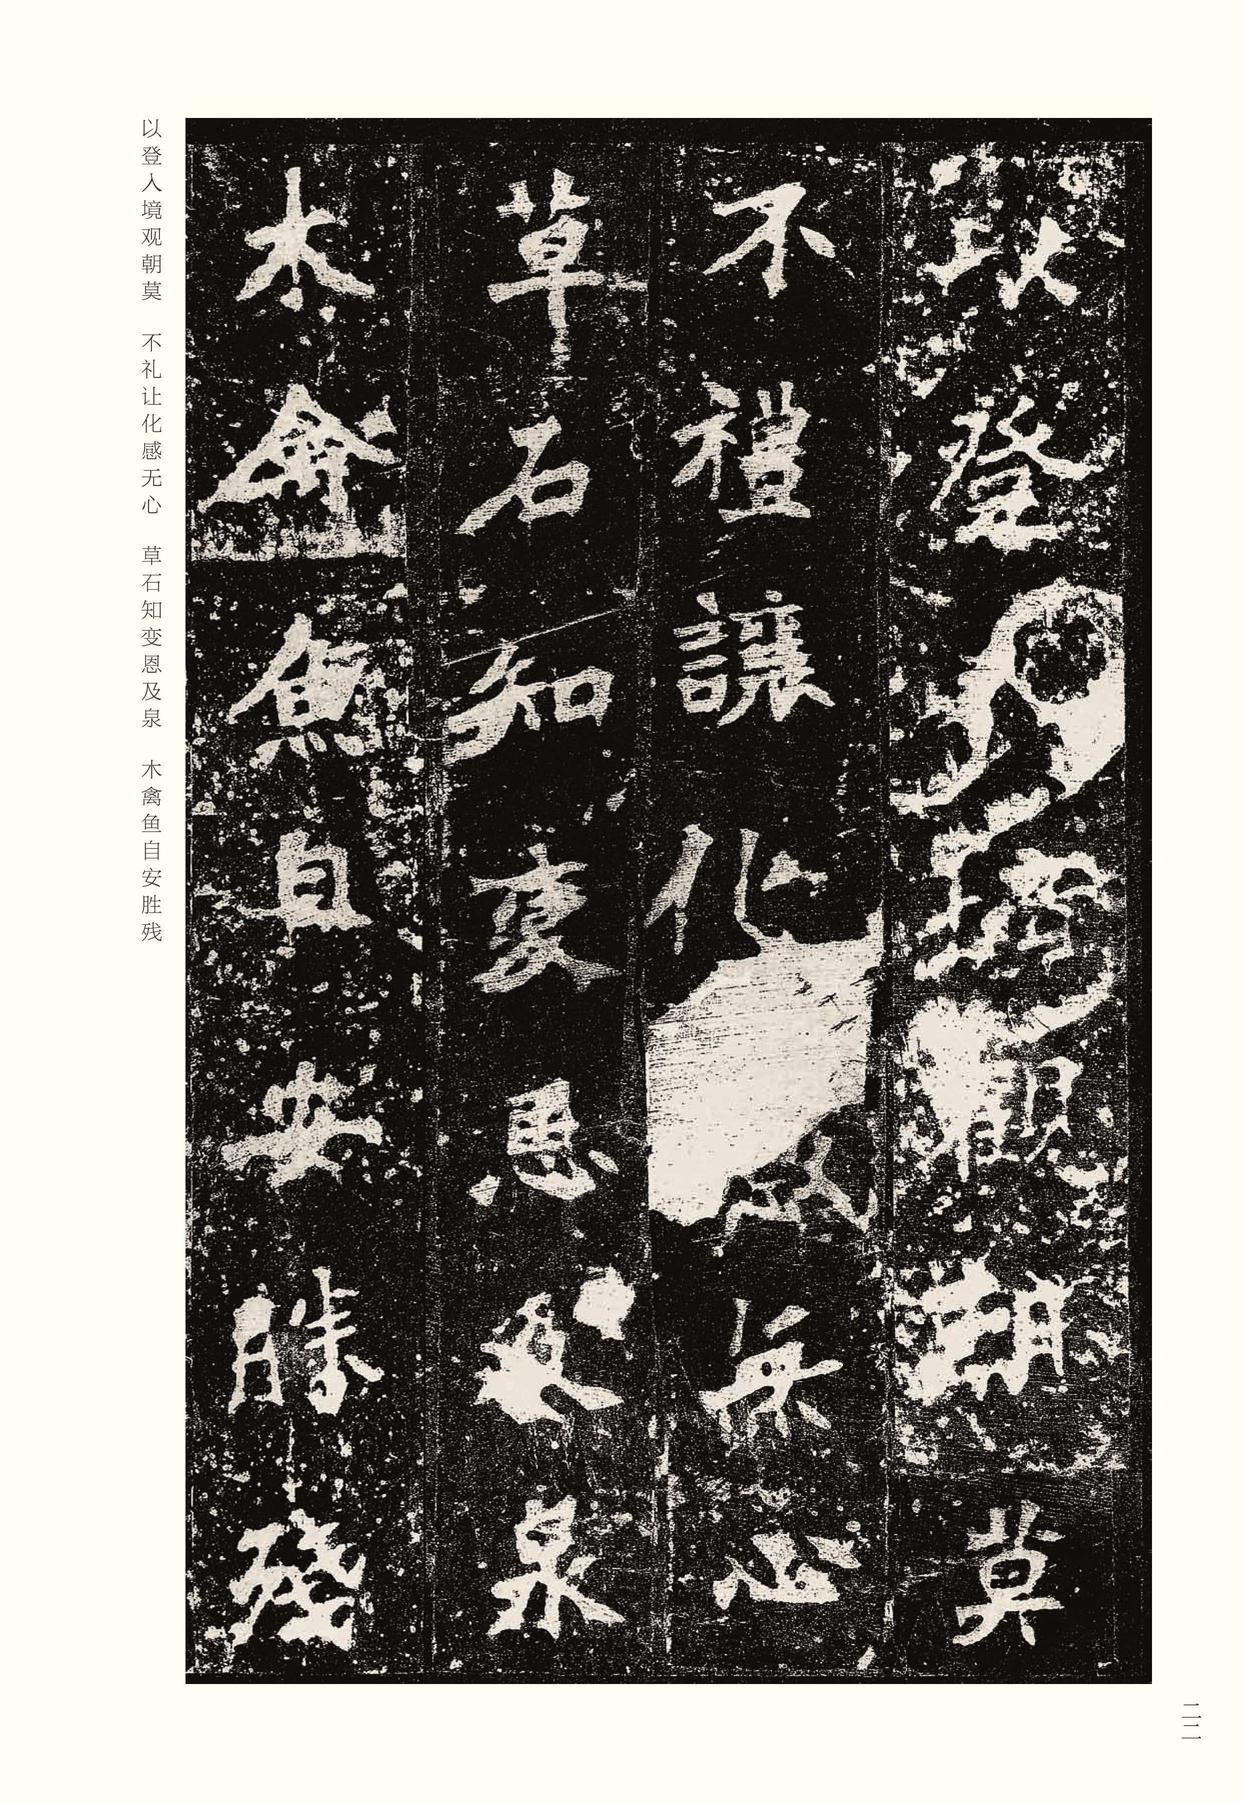 以登入境觀朝莫
不禮讓化感無心
草石知變恩及泉
木禽魚自安勝殘
以登入境观朝莫　不礼让化感无心　草石知变恩及泉　木禽鱼自安胜残
二二